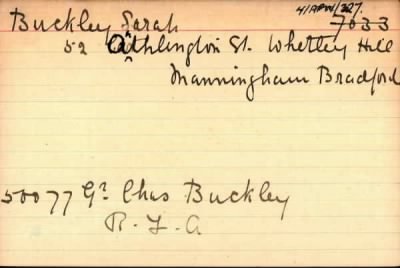 41/APW/327.
Buckley Sarah 7033
52 Athlington St. Whetley Hill
Manningham Bradford
50077 Gr. Chas Buckley
R.F.A